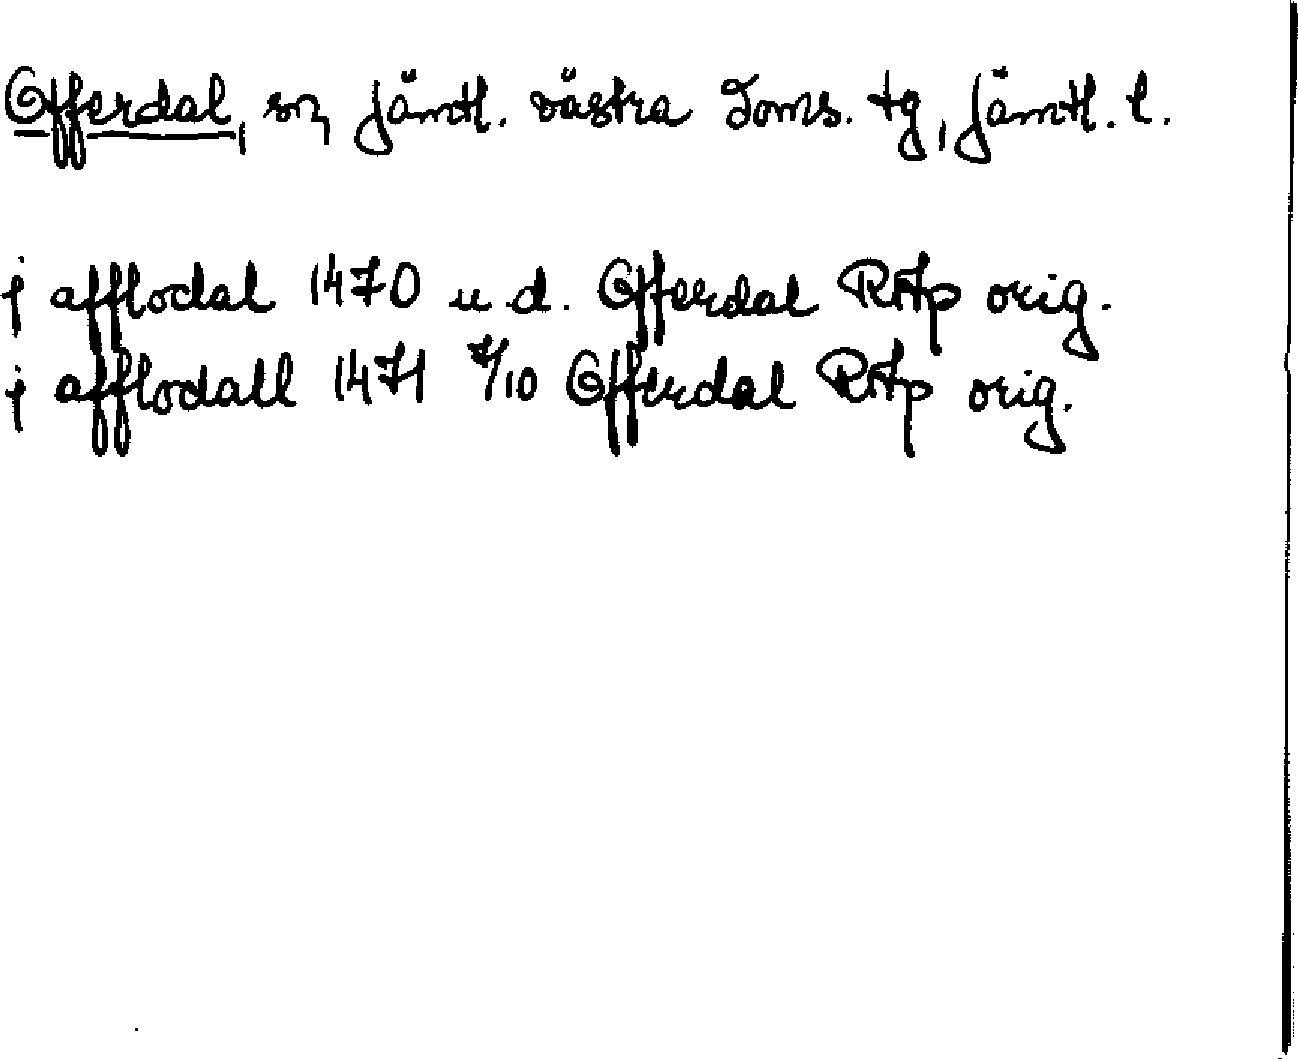 Offerdal, sn, Jämtl. västra Doms. tg, Jämtl. l.
j afflodal 1470 u.d. Offerdal RAp orig.
j afflodall 1471 7/10 Offerdal RAp orig.